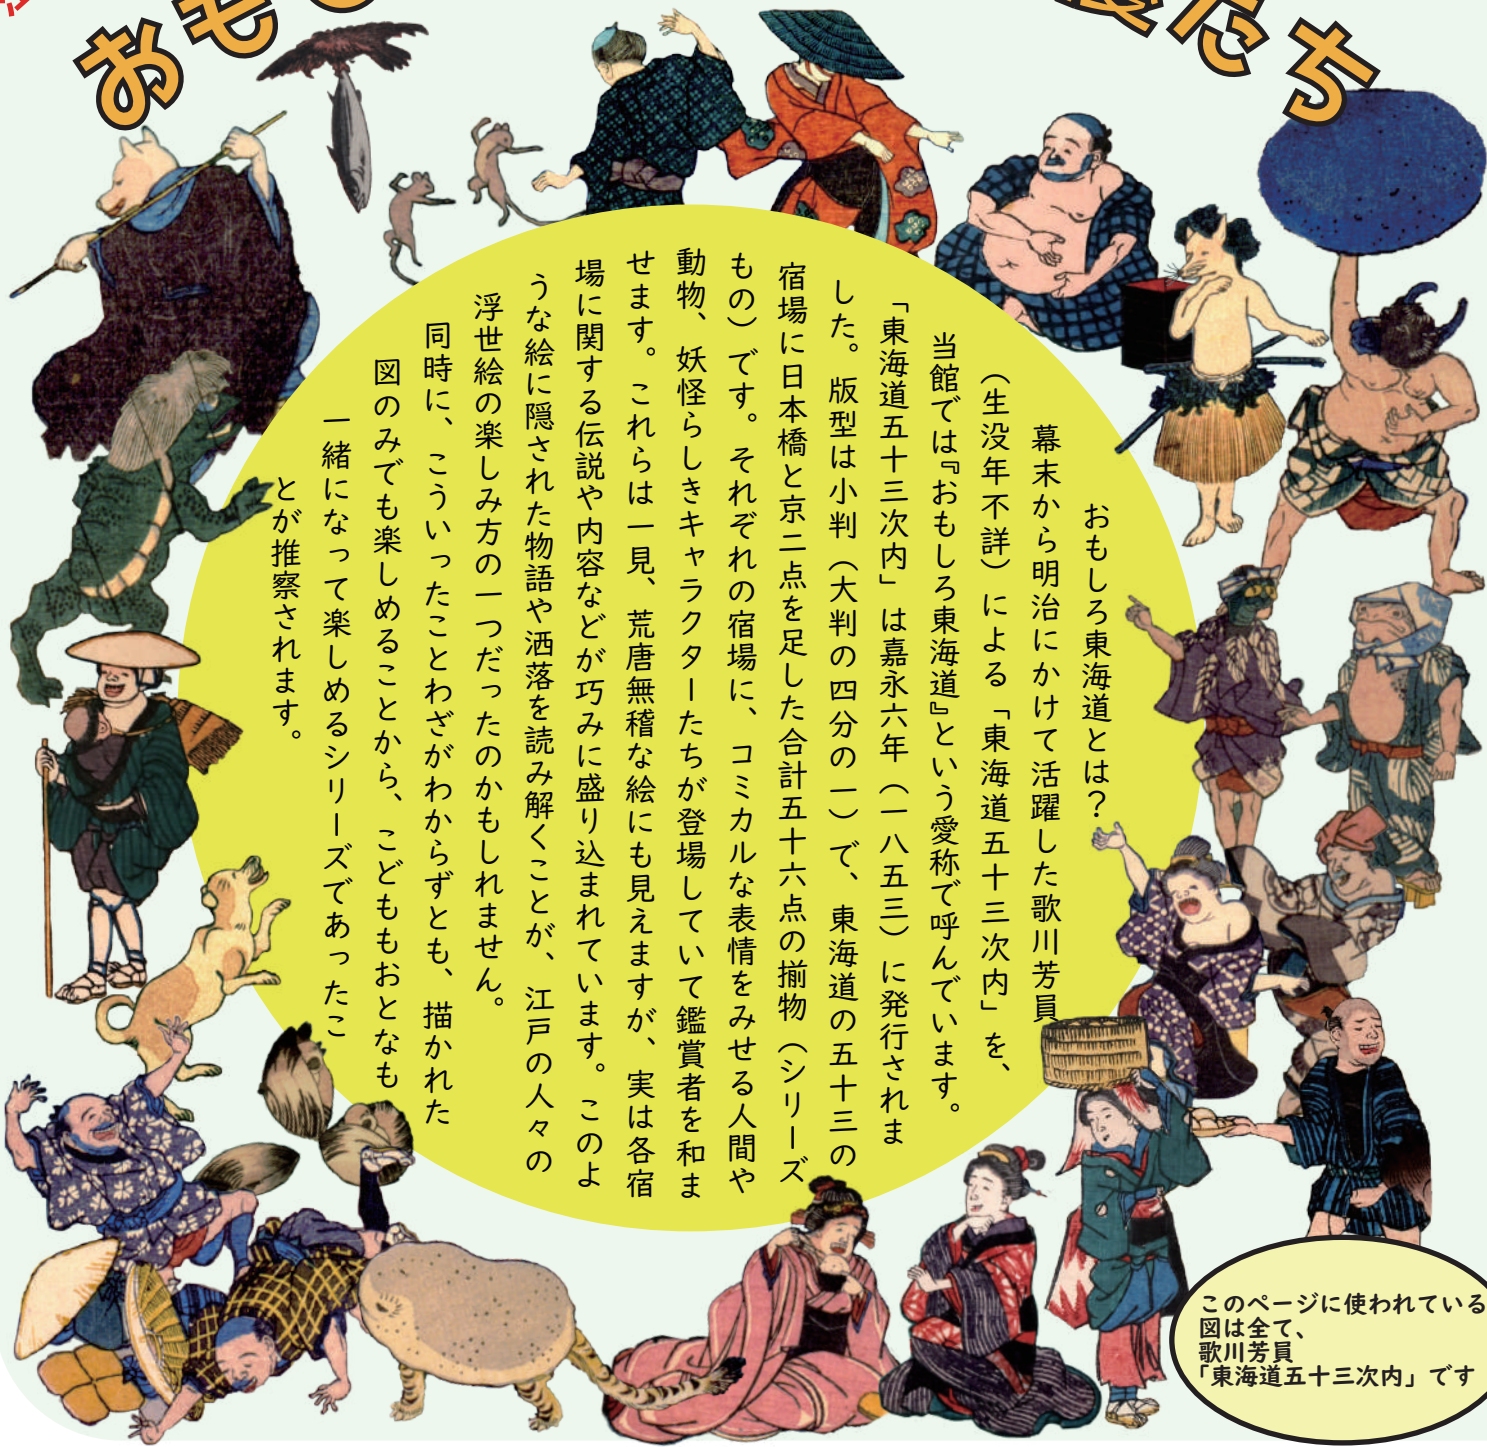 おも
たち
おもしろ東海道とは？
幕末から明治にかけて活躍した歌川芳員
（生没年不詳）による「東海道五十三次内」を、
当館では『おもしろ東海道』という愛称で呼んでいます。
「東海道五十三次内」は嘉永六年（一八五三）に発行されま
した。版型は小判（大判の四分の一）で、東海道の五十三の
宿場に日本橋と京二点を足した合計五十六点の揃物（シリーズ
もの）です。それぞれの宿場に、コミカルな表情をみせる人間や
動物、妖怪らしきキャラクターたちが登場していて鑑賞者を和ま
せます。これらは一見、荒唐無稽な絵にも見えますが、実は各宿
場に関する伝説や内容などが巧みに盛り込まれています。このよ
うな絵に隠された物語や洒落を読み解くことが、江戸の人々の
浮世絵の楽しみ方の一つだったのかもしれません。
同時に、こういったことわざがわからずとも、描かれた
図のみでも楽しめることから、こどももおとなも
一緒になって楽しめるシリーズであったこ
とが推察されます。
このページに使われている
図は全て、
歌川芳員
「東海道五十三次内」です